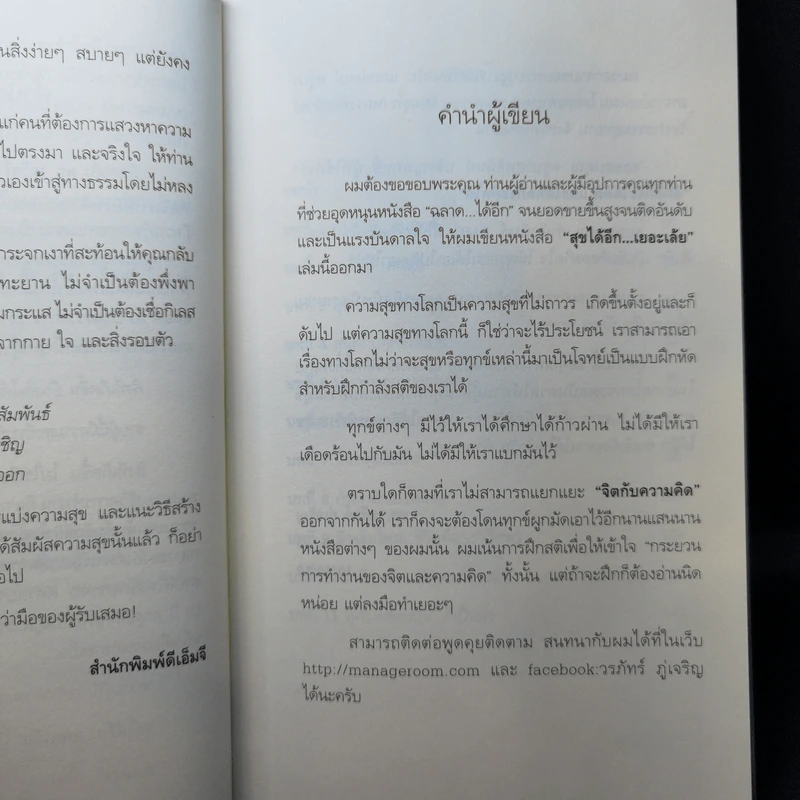 นสิ่งง่ายๆ สบายๆ แต่ยังคง
แก่คนที่ต้องการแสวงหาความ
ไปตรงมา และจริงใจ ให้ท่าน
วเองเข้าสู่ทางธรรมโดยไม่หลง
กระจกเงาที่สะท้อนให้คุณกลับ
ทะยาน ไม่จำเป็นต้องพึ่งพา
มกระแส ไม่จำเป็นต้องเชื่อกิเลส
จากกาย ใจ และสิ่งรอบตัว
สัมพันธ์
ชิญ
ออก
แบ่งความสุข และแนะวิธีสร้าง
ด้สัมผัสความสุขนั้นแล้ว ก็อย่า
อไป
ว่ามือของผู้รับเสมอ!
สำนักพิมพ์ดีเอ็มจี
คำนำผู้เขียน
ผมต้องขอขอบพระคุณ ท่านผู้อ่านและผู้มีอุปการคุณทุกท่าน
ที่ช่วยอุดหนุนหนังสือ "ฉลาด...ได้อีก" จนยอดขายขึ้นสูงจนติดอันดับ
และเป็นแรงบันดาลใจ ให้ผมเขียนหนังสือ "สุขได้อีก...เยอะเลัย"
เล่มนี้ออกมา
ความสุขทางโลกเป็นความสุขที่ไม่ถาวร เกิดขึ้นตั้งอยู่และก็
ดับไป แต่ความสุขทางโลกนี้ ก็ใช่ว่าจะไร้ประโยชน์ เราสามารถเอา
เรื่องทางโลกไม่ว่าจะสุขหรือทุกข์เหล่านี้มาเป็นโจทย์เป็นแบบฝึกหัด
สำหรับฝึกกำลังสติของเราได้
ทุกข์ต่างๆ มีไว้ให้เราได้ศึกษาได้ก้าวผ่าน ไม่ได้มีให้เรา
เดือดร้อนไปกับมัน ไม่ได้มีให้เราแบกมันไว้
ตราบใดก็ตามที่เราไม่สามารถแยกแยะ "จิตกับความคิด"
ออกจากกันได้ เราก็คงจะต้องโดนทุกข์ผูกมัดเอาไว้อีกนานแสนนาน
หนังสือต่างๆ ของผมนั้น ผมเน้นการฝึกสติเพื่อให้เข้าใจ "กระบวน
การทำงานของจิตและความคิด" ทั้งนั้น แต่ถ้าจะฝึกก็ต้องอ่านนิด
หน่อย แต่ลงมือทำเยอะๆ
สามารถติดต่อพูดคุยติดตาม สนทนากับผมได้ที่ในเว็บ
http://manageroom.com และ facebook:วรภัทร์ ภู่เจริญ
ได้นะครับ